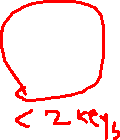 < 2 keys